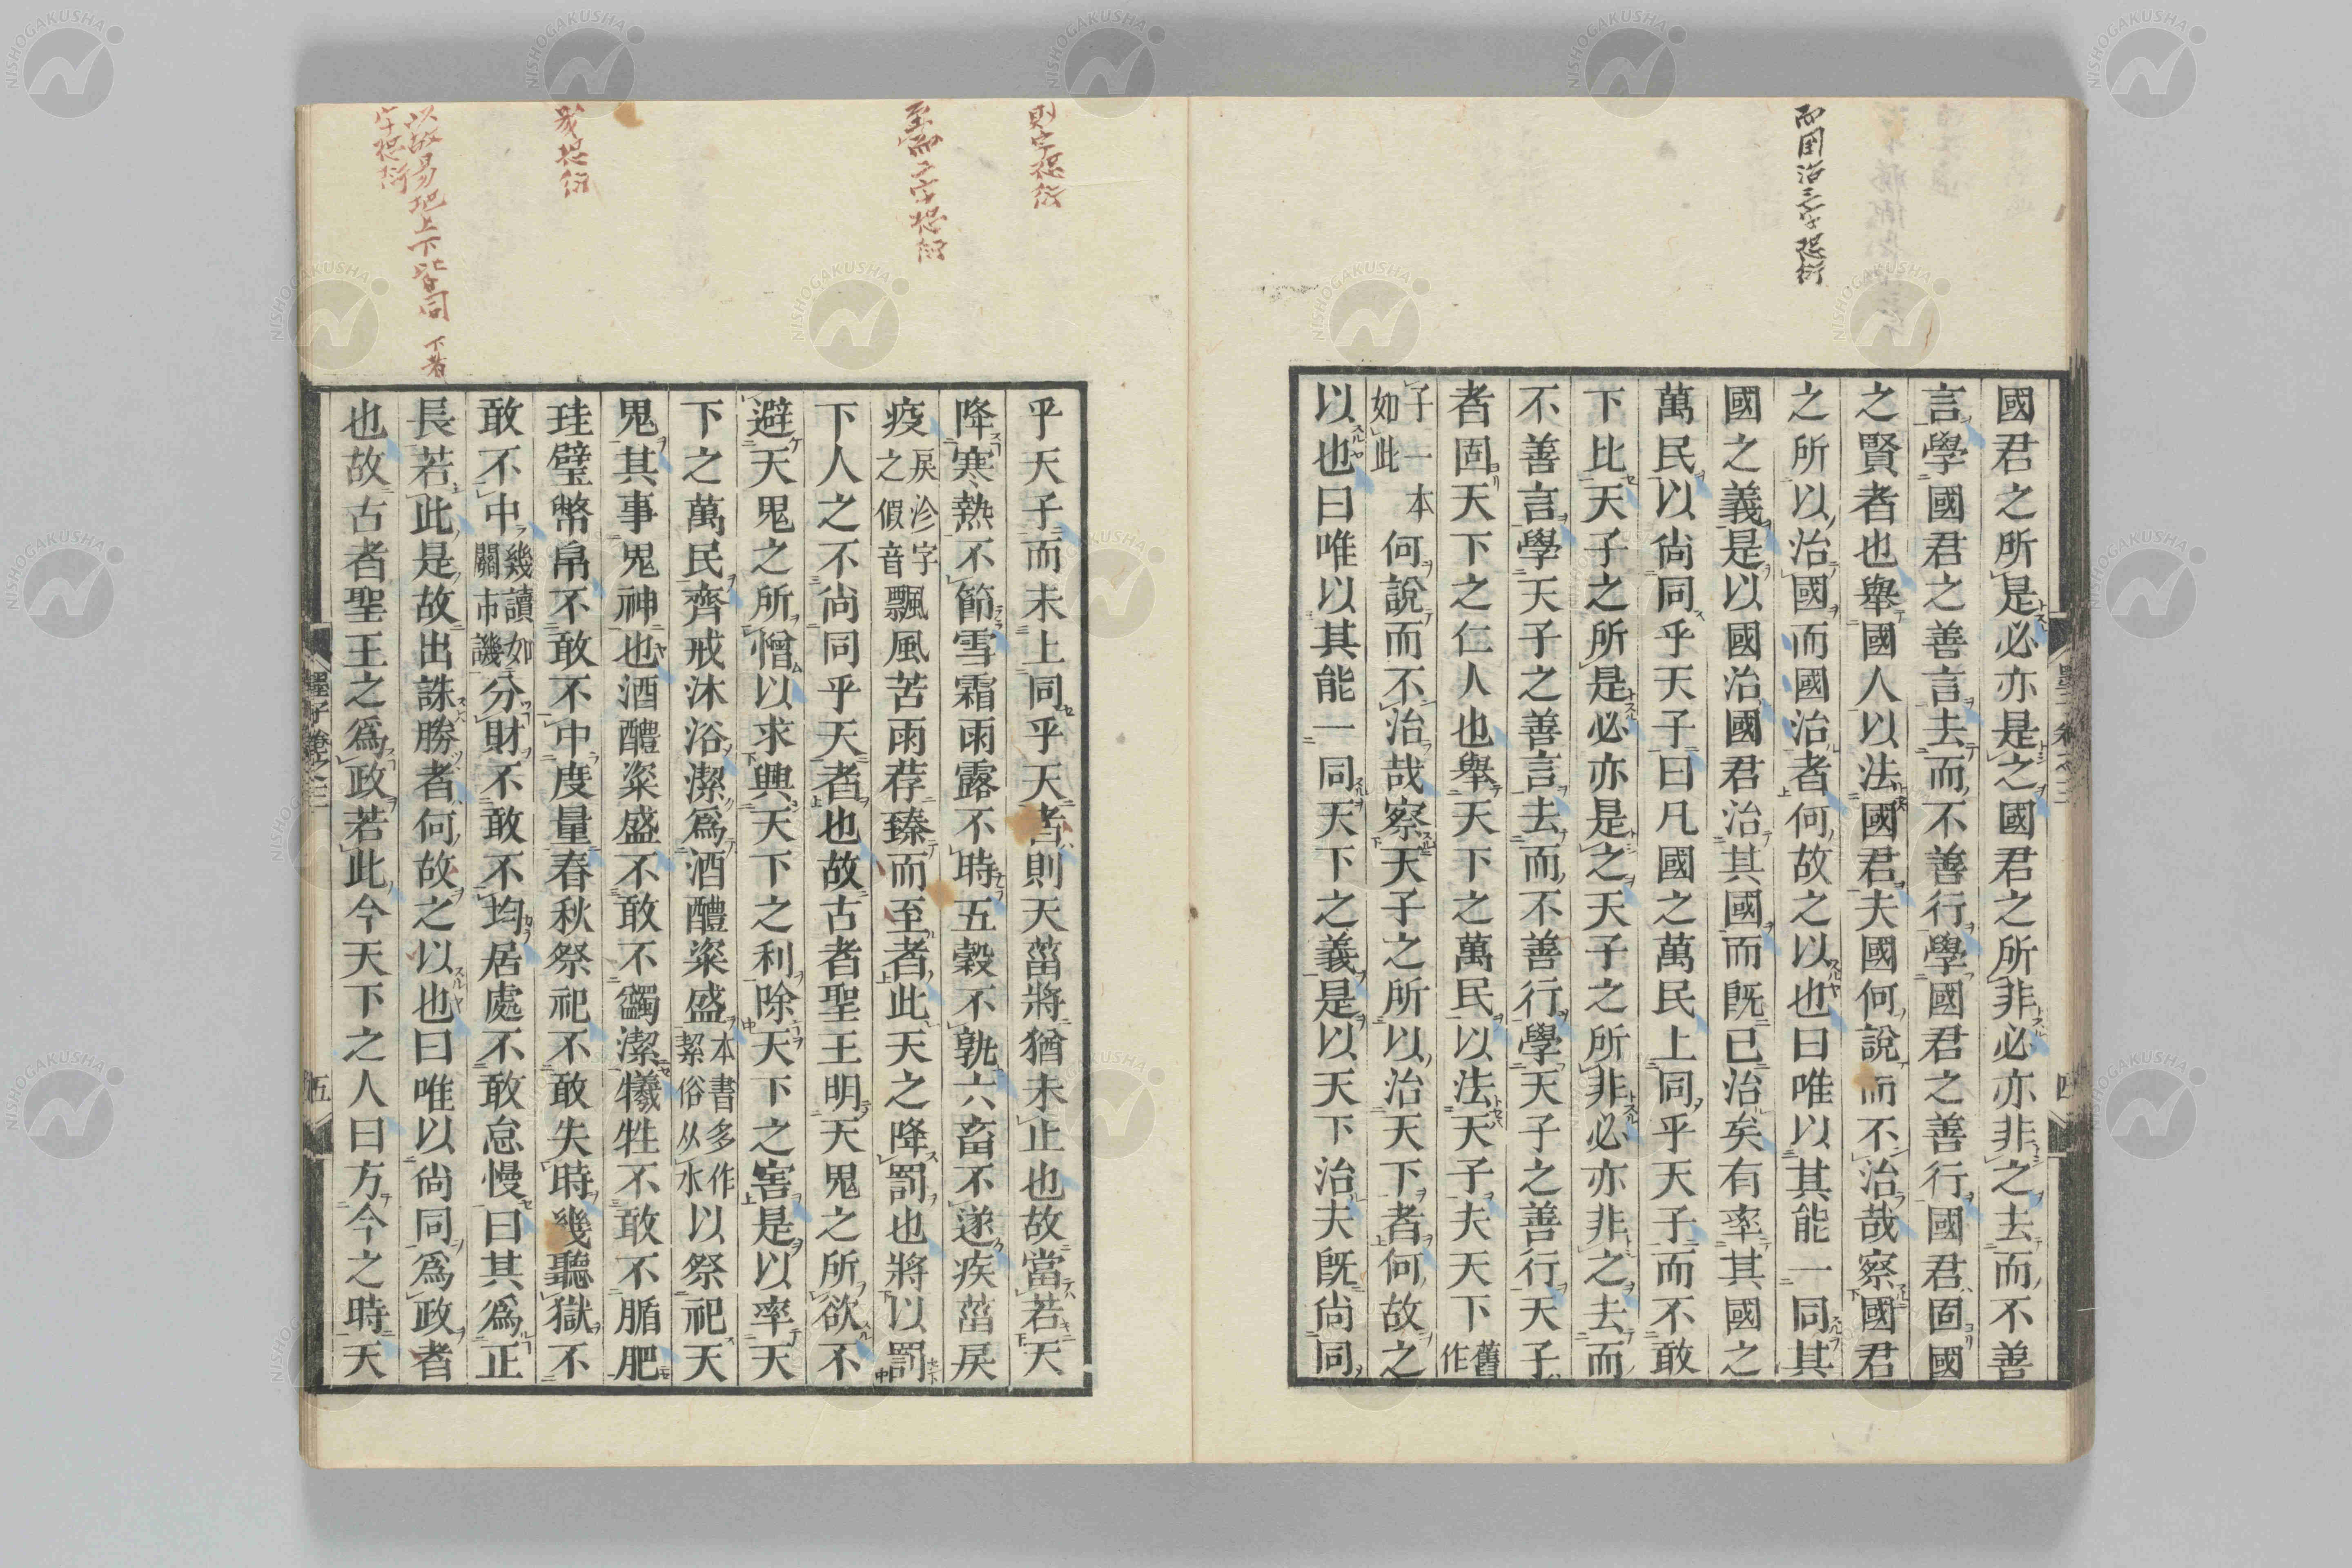 而国治三字恐衍
國君之所是必亦是之國君之所非必亦非之去而不善
言學國君之善言去而不善行學國君之善行國君固國
之賢者也舉國人以法國君夫國何說而不治哉察國君
之所以治國而國治者何故之以也曰唯以其能一同其
國之義是以國治國君治其國而既已治矣有率其國之
萬民以尙同乎天子曰凡國之萬民上同乎天子而不敢
下比天子之所是必亦是之天子之所非必亦非之去而
不善言學天子之善言去而不善行學天子之善行天子
者固天下之仁人也舉天下之萬民以法天子夫天下舊作
子一本如此何說而不治哉察天子之所以治天下者何故之
以也曰唯以其能一同天下之義是以天下治夫既尙同
墨子卷之三
四
則字恐衍
至而二字恐衍
幾恐衍
以故易地上下皆同 下者
字恐衍
乎天子而未上同乎天者則天菑將猶未止也故當若天
降寒熱不節雪霜雨露不時五穀不孰六畜不遂疾菑戾
疫戾沴字之假音飄風苦雨荐臻而至者此天之降罰也將以罰
下人之不尙同乎天者也故古者聖王明天鬼之所欲不
避天鬼之所憎以求興天下之利除天下之害是以率天
下之萬民齊戒沐浴潔爲酒醴粢盛本書多作絜俗从水以祭祀天
鬼其事鬼神也酒醴粢盛不敢不蠲潔犧牲不敢不腯肥
珪璧幣帛不敢不中度量春秋祭祀不敢失時幾聽獄不
敢不中幾讀如關市譏分財不敢不均居處不敢怠慢曰其爲正
長若此是故出誅勝者何故之以也曰唯以尙同爲政者
也故古者聖王之爲政若此今天下之人曰方今之時天
墨子卷之三
五
NISHOGAKUSHA